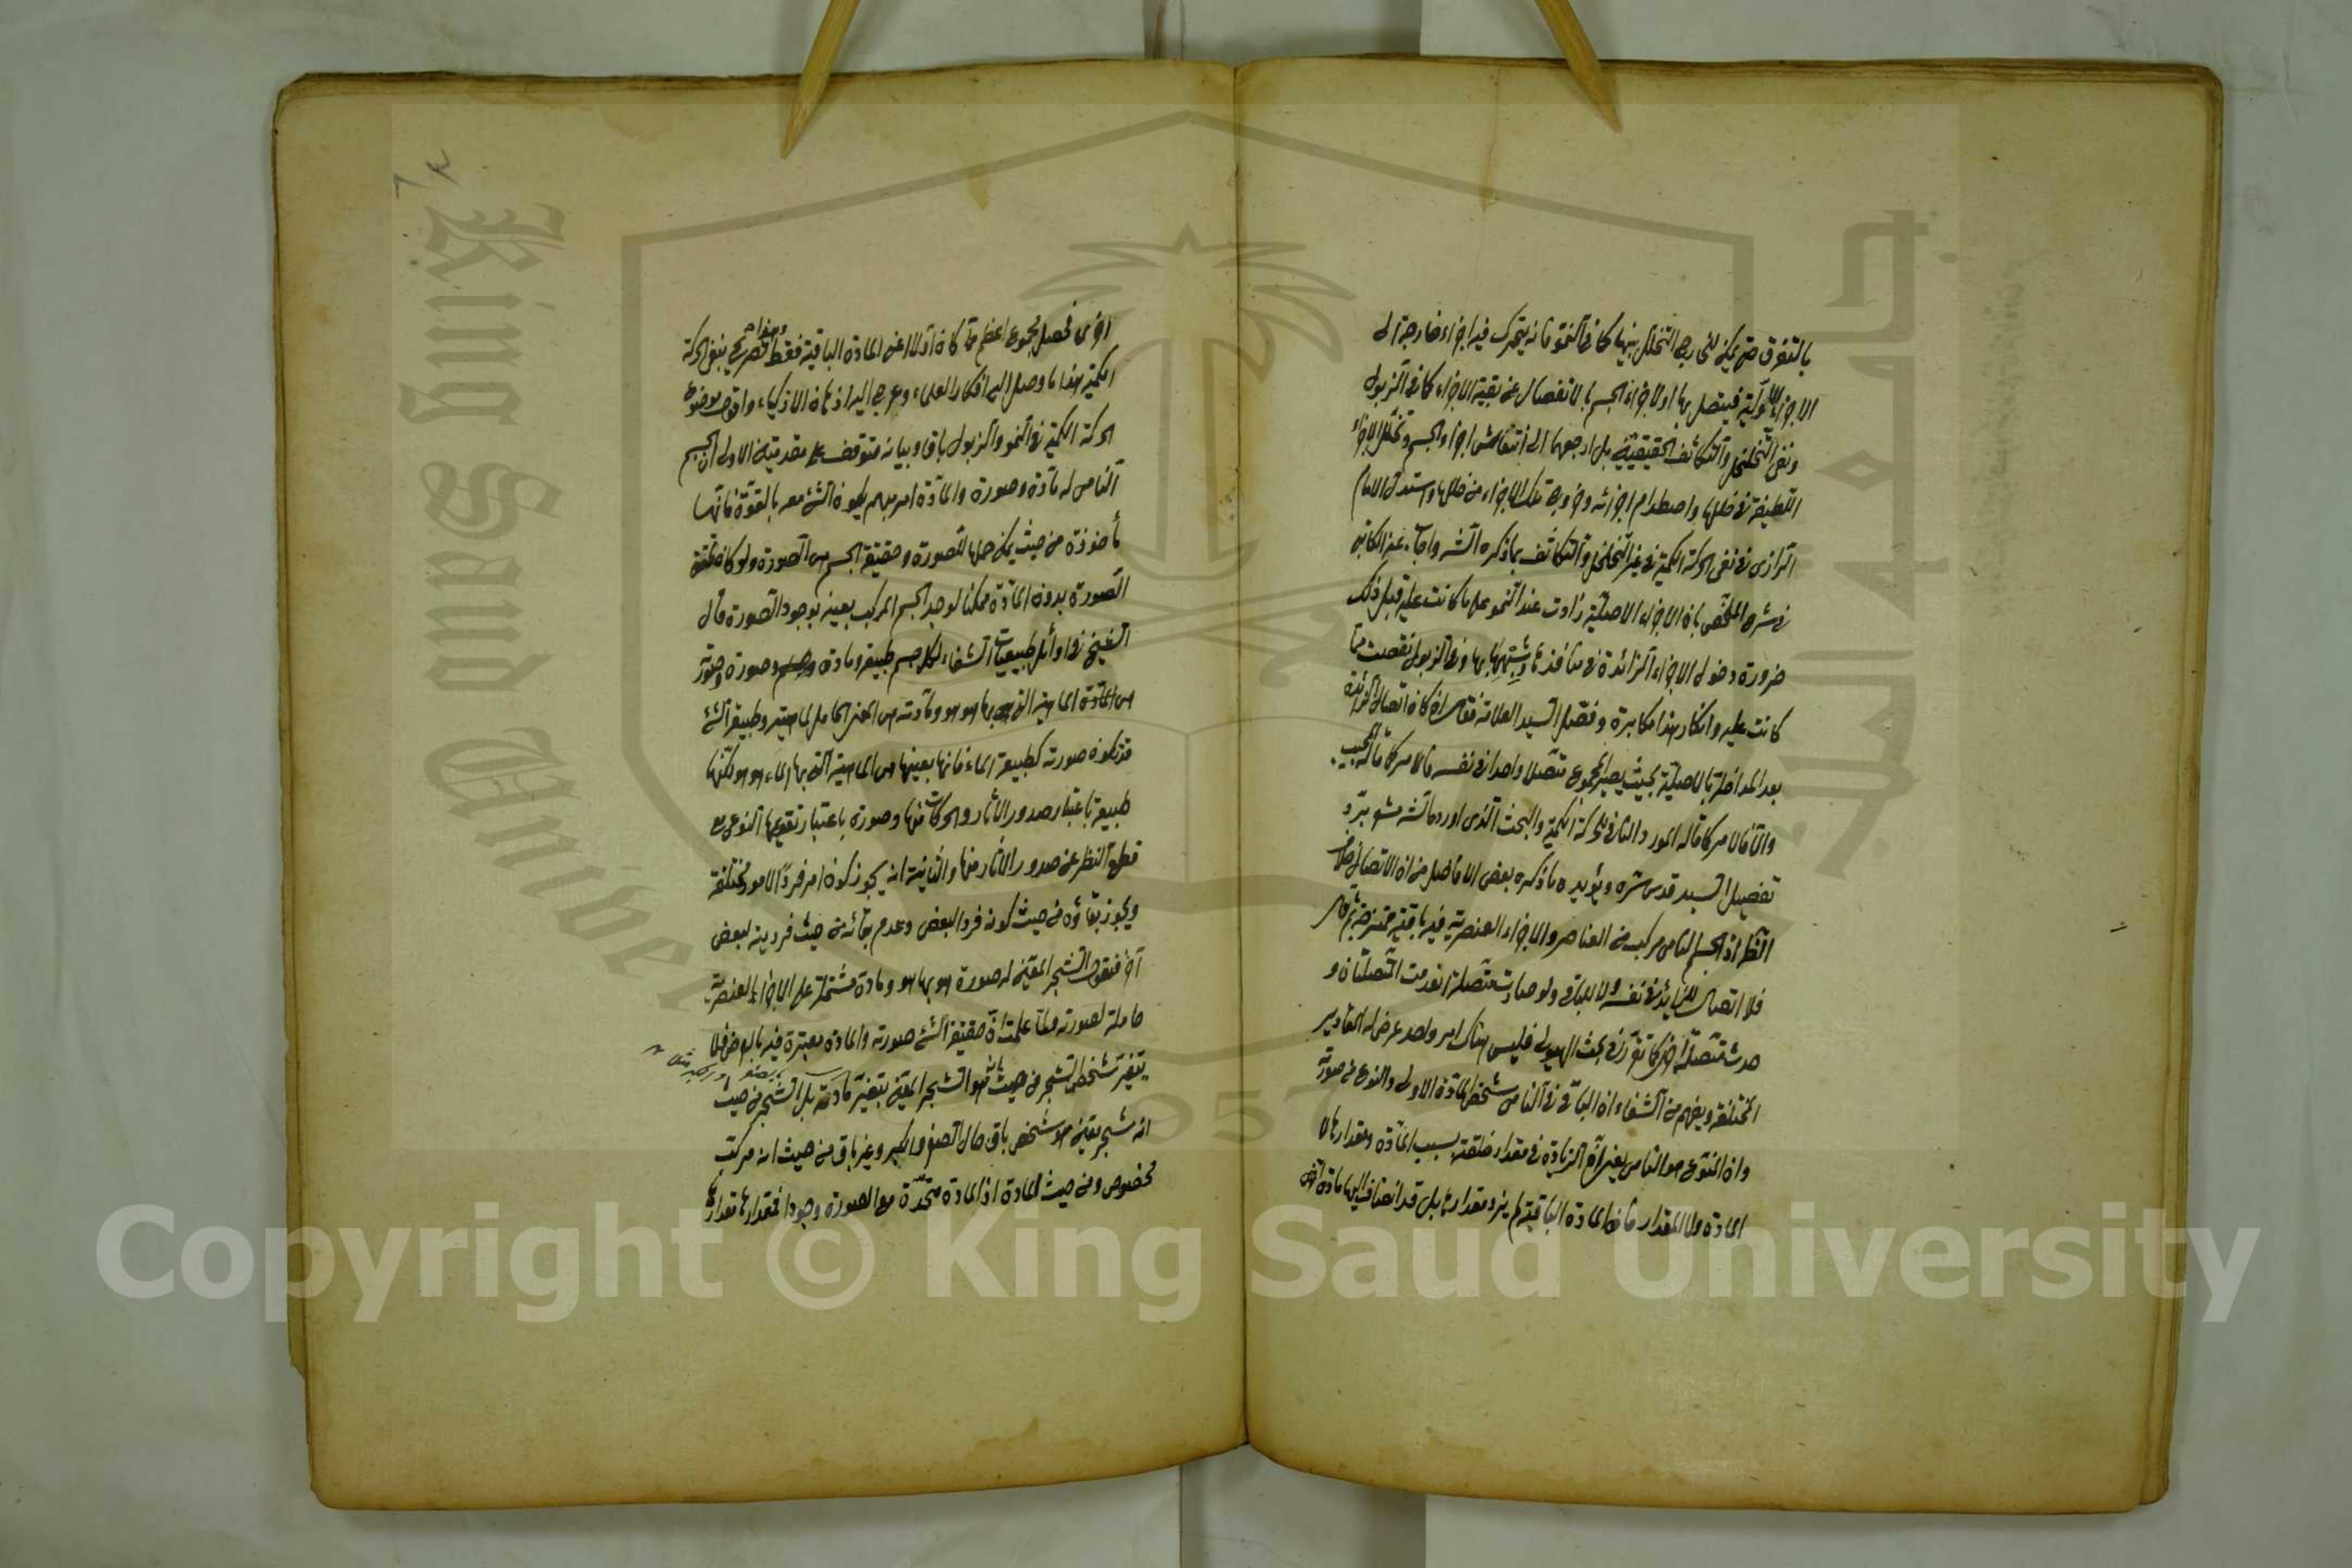 بالتفرق حتى يمكن للخارج التخلل بينها كما في النمو فانه يتحرك فيه اجزاء خارجة الى
الاجزاء الاولية فيتصل بها اولا جزاء الجسم بالانفصال عن بقية الاجزاء كما في الذبول
ونفى التخلخل والتكاثف الحقيقيين بل ارجعهما الى انتفاش اجزاء الجسم وتخلل الاجزاء
اللطيفة في خللها واصطدام اجزائه وخروج تلك الاجزاء من خللها واستدل الامام
الرازى في نفى الحركة الكمية في غير التخلخل والتكاثف بما ذكره الشـ واجاب عنه الكاتبى
في شرح الملخص بان الاجزاء الاصلية زادت عند النمو على ما كانت عليه قبل ذلك
ضرورة دخول الاجزاء الزائدة في منافذها وتشبهها بها وفى الذبول نقصت عما
كانت عليه وانكار هذا مكابرة وفصل السيد العلامة فقال ان كان اتصال الزائدة
بعد المداخلة بالاصلية بحيث يصير المجموع متصلا واحدا في نفسه فالامر كما قاله المجيب
والا فالامر كما قاله المورد النافى للحركة الكمية والبحث الذى اورده الشـ
تفصيل السيد قدس سره ويؤيده ما ذكره بعض الافاضل من ان الاتصال خلاف
النظر اذ الجسم النامى مركب من العناصر والاجزاء العنصرية فيه باقية
فلا اتصال للزايد في نفسه ولا للباقى ولو صارت متصلة انعدمت المتصلتان و
حدث متصل آخر كما تقرر في بحث الهيولى فليس هناك امر واحد عرض له المقادير
المختلفة ويفهم من الشفاء ان الباقى في النامى شخص المادة الاولى والنوع في صورته
وان النوع هو النامى يعنى ان الزيادة في مقدار خلقته بسبب المادة ومقدارها لا
المادة ولا المقدار فان المادة الباقية لم يزد مقدارها بل قد انضاف اليها مادة اخرى
اخرى فحصل مجموع اعظم مما كان اولا اعنى المادة الباقية فقط وهذا تصريح بنفى الحركة
الكمية هذا ما وصل اليه افكار العلماء وعرج اليه اذهان الاذكياء واقول موضوع
الحركة الكمية في النمو والذبول باق وبيانه متوقف على مقدمتين الاولى ان الجسم
النامى له مادة وصورة والمادة امر مبهم يكون الشئ معه بالقوة فانها
مأخوذة من حيث يمكن حملها للصورة وحقيقة الجسم هى الصورة ولو كان تحقق
الصورة بدون المادة ممكنا لوجد الجسم المركب بعينه بوجود الصورة قال
الشيخ في اوائل طبيعيات الشفاء لكل جسم طبيعة ومادة وصورة وصورته
هى الماهية التى بها هو هو ومادته هى المعنى الحامل لماهيته وطبيعة الشئ
قد تكون صورته كطبيعة الماء فانها بعينها هى الماهية التى بها الماء هو هو لكنها
طبيعة باعتبار صدور الاثار والحركات منها وصورة باعتبار تقويمها النوع مع
قطع النظر عن صدور الاثار منها والثانية انه يجوز كون امر فردا لامور مختلفة
ويجوز بقاؤه من حيث كونه فردا لبعض وعدم بقائه من حيث فرديته لبعض
آخر فنقول الشجر المعين له صورة هو بها هو ومادة مشتملة على الاجزاء العنصرية
حاملة لصورته ولما علمت ان حقيقة الشئ صورته والمادة معتبرة فيه بالعرض فلا
يتغير تشخص الشجر من حيث انه هو الشجر المعين بتغير مادته بل الشجر من حيث
انه شجر معين هو شخص باق حال الصغر والكبر وغير باق من حيث انه مركب
مخصوص ومن حيث المادة اذ المادة متحدة مع الصورة وجودا فمقدارها مقدارها
King Saud University
جامعة الملك سعود
1957
Copyright © King Saud University